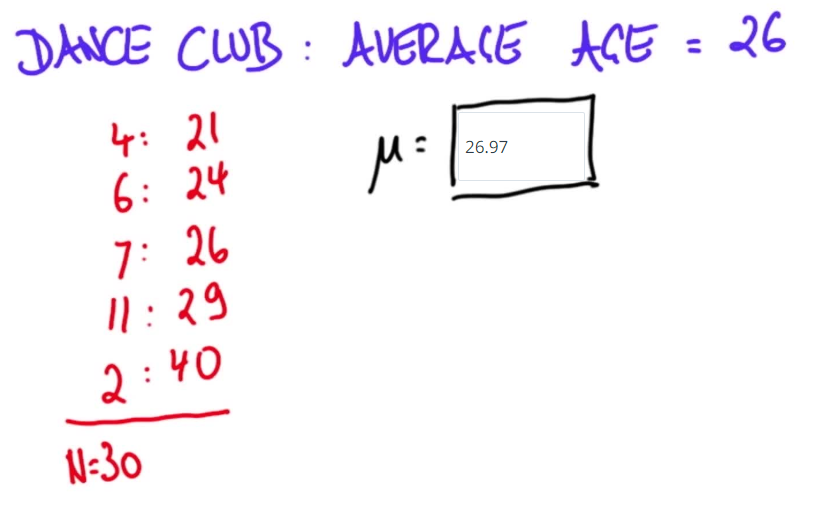 DANCE CLUB : AVERAGE AGE = 26
4: 21
μ = 26.97
6: 24
7: 26
11: 29
2: 40
N=30